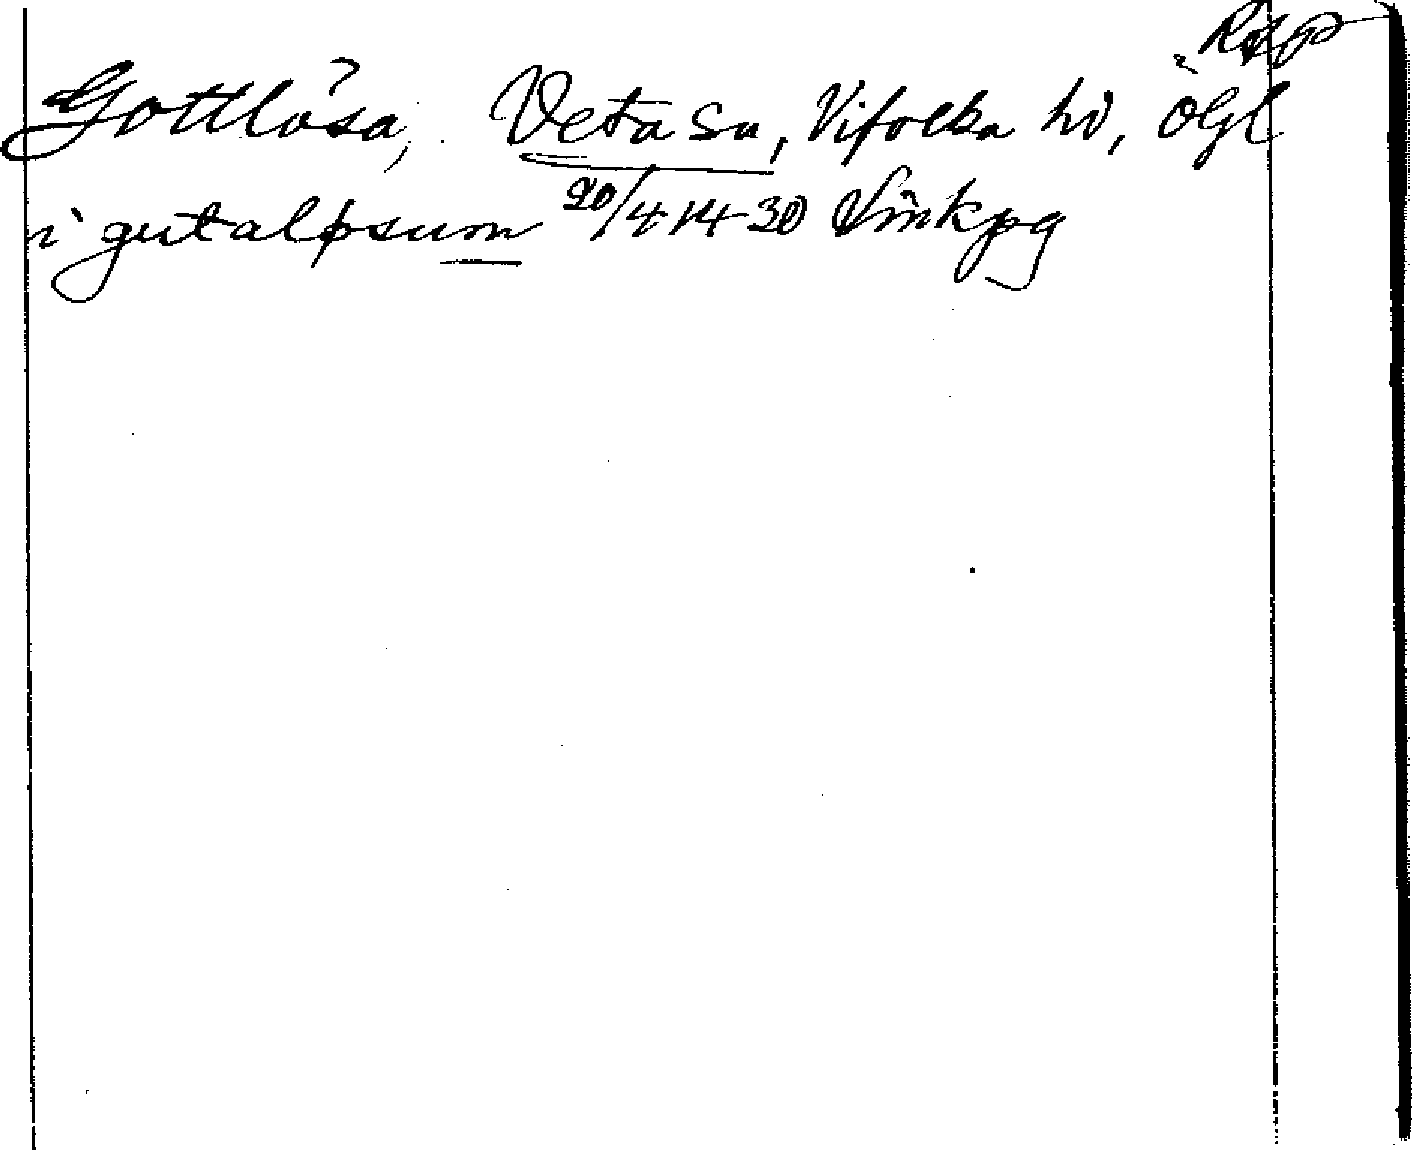 Rap
Gottlösa, Veta sn, Vifolka hd, Ögl
i gutaløsum 20/4 1430 Linkpg